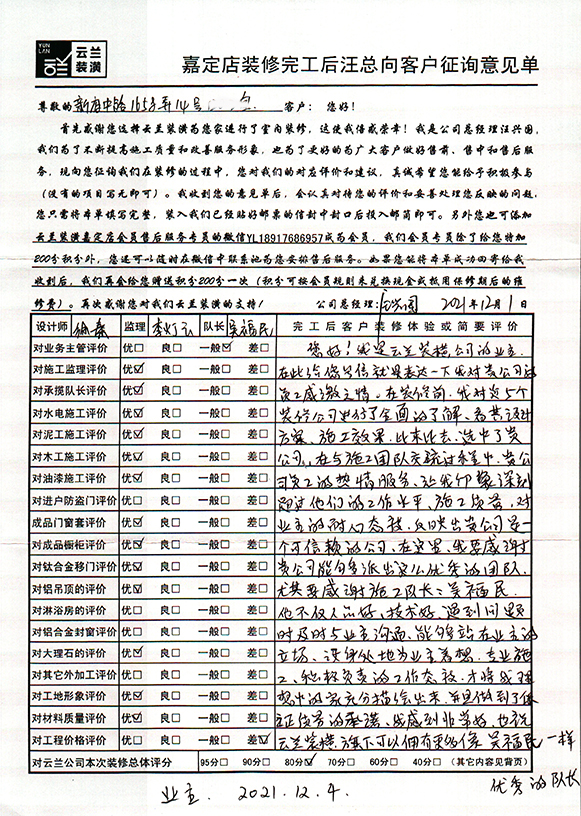 YUN LAN
云兰
装潢
嘉定店装修完工后汪总向客户征询意见单
尊敬的 新府中路1655弄14号 客户： 您好！
首先感谢您选择云兰装潢为您家进行了室内装修，这使我倍感荣幸！我是公司总经理汪兴国，
我们为了不断提高施工质量和改善服务形象，也为了更好的为广大客户做好售前、售中和售后服
务，现向您征询我们在装修的过程中，您对我们的对应评价和建议，真诚希望您能给予积极参与
（没有的项目写无即可）。我收到您的意见单后，会认真对待您的评价和妥善处理您反映的问题，
您只需将本单填写完整，装入我们已经贴好邮票的信封中封口后投入邮筒即可。另外您也可添加
云兰装潢嘉定店会员售后服务专员的微信YL18917686957成为会员，我们会员专员除了给您特加
200分积分外，您还可以随时在微信中联系她为您安排售后服务。如果您能将本单成功回寄给我
收到后，我们再会给您赠送积分200分一次（积分可按会员规则来兑换现金或抵用保修期后的维
修费）。再次感谢您对我们云兰装潢的支持！ 公司总经理： 2021年12月1日
设计师 徐 监理 李灯云 队长 吴福民 完工后客户装修体验或简要评价
对业务主管评价 优□ 良□ 一般☑ 差□ 您好！我是云兰装潢公司的业主.
对施工监理评价 优☑ 良□ 一般□ 差□ 在此给您写信就是表达一下我对贵公司的
对承揽队长评价 优☑ 良□ 一般□ 差□ 员工感激之情。在装修前，我对贵5个
对水电施工评价 优☑ 良□ 一般□ 差□ 装修公司进行了全面的了解、看其设计
对泥工施工评价 优☑ 良□ 一般□ 差□ 方案、施工效果，比来比去，选中了贵
对木工施工评价 优☑ 良□ 一般□ 差□ 公司，在与施工团队交流过程中，贵公
对油漆施工评价 优☑ 良□ 一般□ 差□ 司员工的热情服务，让我印象深刻
对进户防盗门评价 优□ 良□ 一般□ 差□ 通过他们的工作水平、施工质量、对
成品门窗套评价 优☑ 良□ 一般□ 差□ 业主的耐心态度，反映出贵公司是一
对成品橱柜评价 优☑ 良□ 一般□ 差□ 个可信赖的公司，在这里，我要感谢
对钛合金移门评价 优□ 良□ 一般□ 差□ 贵公司能够派出这么优秀的团队，
对铝吊顶的评价 优☑ 良□ 一般□ 差□ 尤其要感谢施工队长：吴福民.
对淋浴房的评价 优□ 良□ 一般□ 差□ 他不仅人品好、技术好，遇到问题
对铝合金封窗评价 优□ 良□ 一般□ 差□ 时及时与业主沟通，能够站在业主的
对大理石的评价 优☑ 良□ 一般□ 差□ 立场、设身处地为业主着想，专业施
对其它外加工评价 优□ 良□ 一般□ 差□ 工、积极负责的工作态度，才将我理
对工地形象评价 优☑ 良□ 一般□ 差□ 想中的家充分描绘出来，并且做到了保
对材料质量评价 优☑ 良□ 一般□ 差□ 证质量的承诺，我感到非常好，也祝
对工程价格评价 优□ 良□ 一般□ 差☑ 云兰装潢旗下可以拥有更多像吴福民一样
对云兰公司本次装修总体评分 95分□ 90分□ 80分☑ 70分□ 60分□ 40分□ （其它内容见背页） 优秀的队长
业主. 2021.12.4.